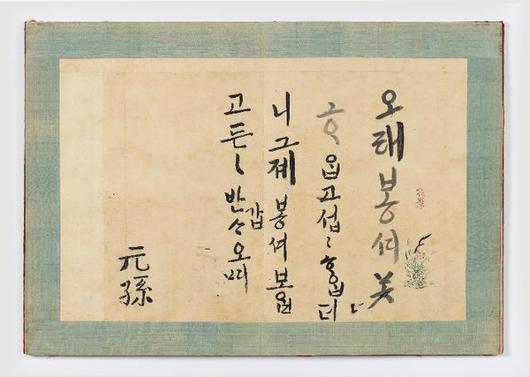 오래봉셔못
ᄒᆞ옵고섭〻ᄒᆞ옵더
니그졔봉셔보옵
고든〻반갑ᄉᆞ오며
元孫